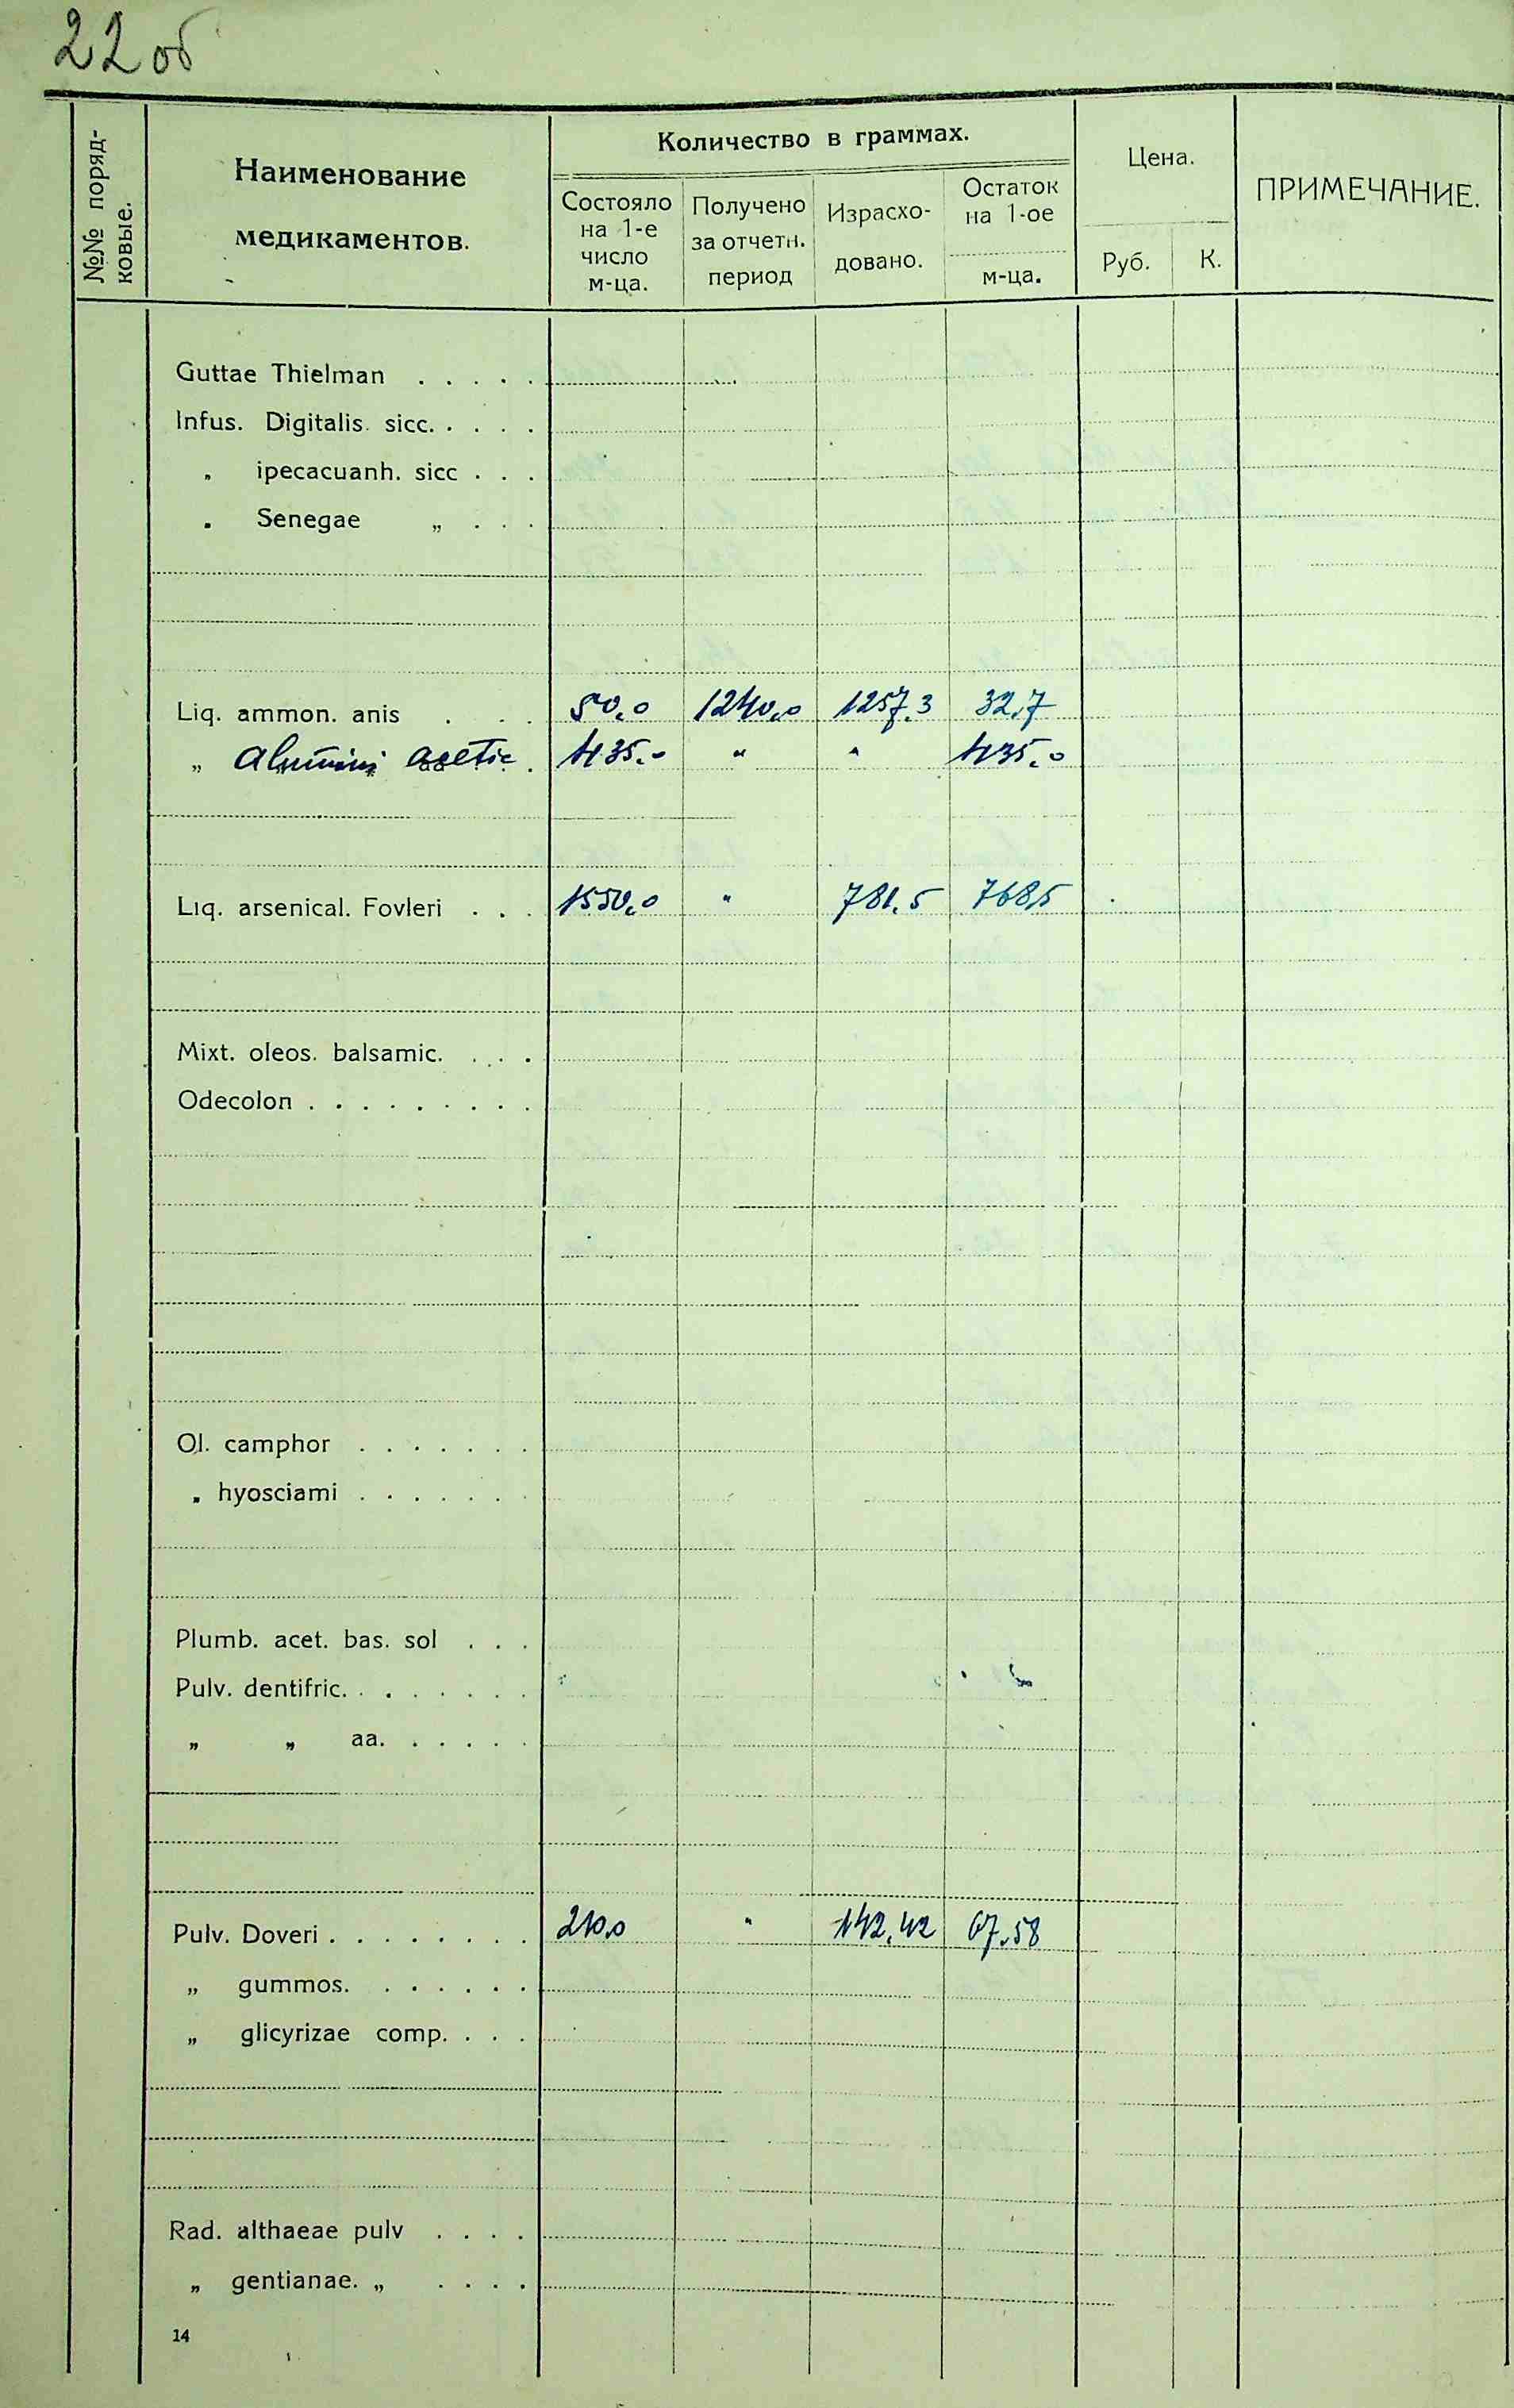 22 об
№№ поряд-
ковые.
Наименование
медикаментов.
Количество в граммах.
Состояло
на 1-е
число
м-ца.
Получено
за отчетн.
период
Израсхо-
довано.
Остаток
на 1-ое
м-ца.
Цена.
Руб. К.
ПРИМЕЧАНИЕ.
Guttae Thielman . . . . .
Infus. Digitalis. sicc. . . . .
„ ipecacuanh. sicc . . .
„ Senegae „ . . .
Liq. ammon. anis . . . 50,0 1240,0 1257,3 32,7
„ Alumini acetic. 435,0 " " 435,0
Liq. arsenical. Fovleri . . . 1550,0 " 781,5 768,5
Mixt. oleos. balsamic. . . .
Odecolon . . . . . . . . .
Ol. camphor . . . . . . .
„ hyosciami . . . . . . .
Plumb. acet. bas. sol . . .
Pulv. dentifric. . . . . . . .
„ „ aa. . . . . .
Pulv. Doveri . . . . . . . . 210,0 " 142,42 67,58
„ gummos. . . . . . .
„ glicyrizae comp. . . .
Rad. althaeae pulv . . . .
„ gentianae. „ . . . .
14